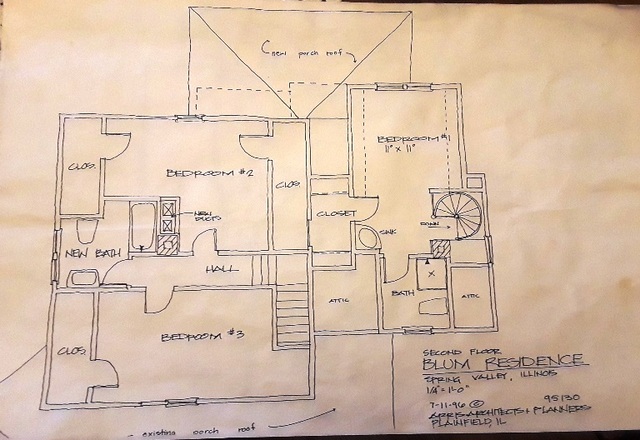 new porch roof
BEDROOM #1
11' x 11'
CLOS.
BEDROOM #2
CLOS.
CLOSET
NEW
DUCTS
DOWN
SINK
NEW BATH
HALL
ATTIC
BATH
ATTIC
BEDROOM #3
CLOS.
SECOND FLOOR
BLUM RESIDENCE
SPRING VALLEY, ILLINOIS
1/4" = 1'-0"
95130
7-11-96 ©
ARCHITECTS + PLANNERS
PLAINFIELD, IL
existing porch roof